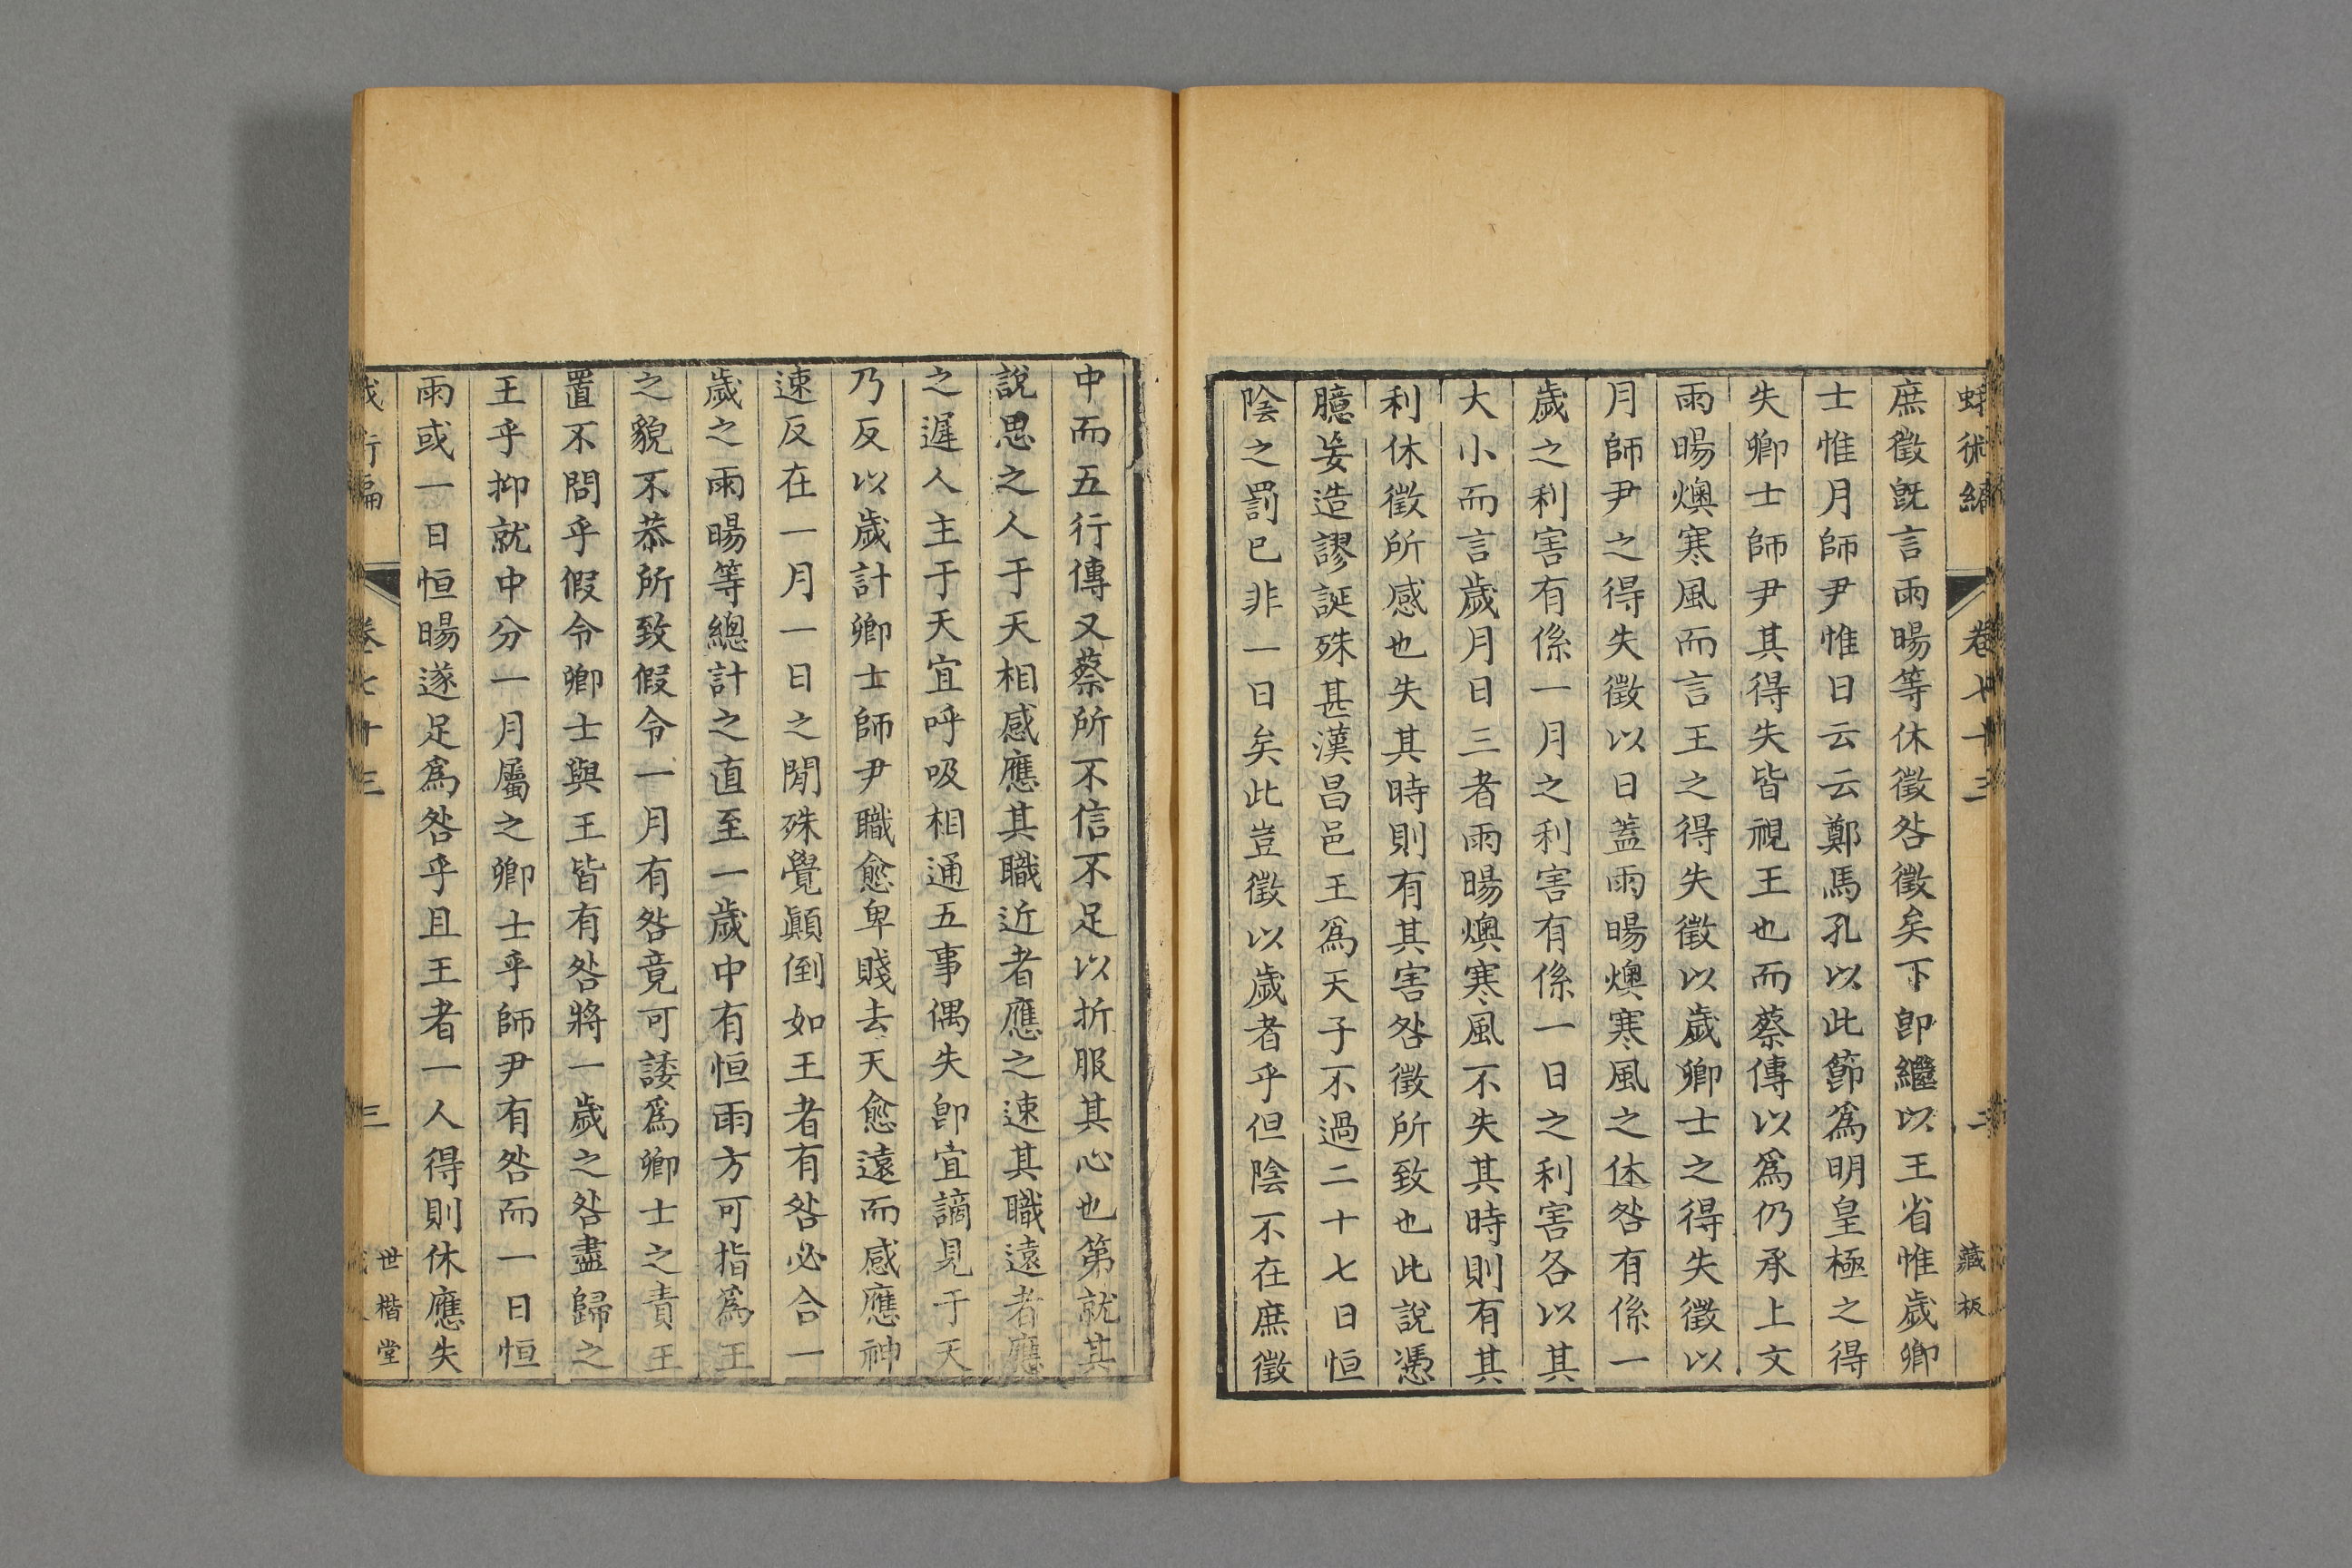 蛾術編 卷七十三 二 藏板
庶徵旣言雨暘等休徵咎徵矣下卽繼以王省惟歲卿
士惟月師尹惟日云云鄭馬孔以此節爲明皇極之得
失卿士師尹其得失皆視王也而蔡傳以爲仍承上文
雨暘燠寒風而言王之得失徵以歲卿士之得失徵以
月師尹之得失徵以日蓋雨暘燠寒風之休咎有係一
歲之利害有係一月之利害有係一日之利害各以其
大小而言歲月日三者雨暘燠寒風不失其時則有其
利休徵所感也失其時則有其害咎徵所致也此說憑
臆妄造謬誕殊甚漢昌邑王爲天子不過二十七日恒
陰之罰已非一日矣此豈徵以歲者乎但陰不在庶徵
中而五行傳又蔡所不信不足以折服其心也第就其
說思之人于天相感應其職近者應之速其職遠者應
之遲人主于天宜呼吸相通五事偶失卽宜謫見于天
乃反以歲計卿士師尹職愈卑賤去天愈遠而感應神
速反在一月一日之閒殊覺顚倒如王者有咎必合一
歲之雨暘等總計之直至一歲中有恒雨方可指爲王
之貌不恭所致假令一月有咎竟可諉爲卿士之責王
置不問乎假令卿士與王皆有咎將一歲之咎盡歸之
王乎抑就中分一月屬之卿士乎師尹有咎而一日恒
雨或一日恒暘遂足爲咎乎且王者一人得則休應失
蛾術編 卷七十三 三 世楷堂